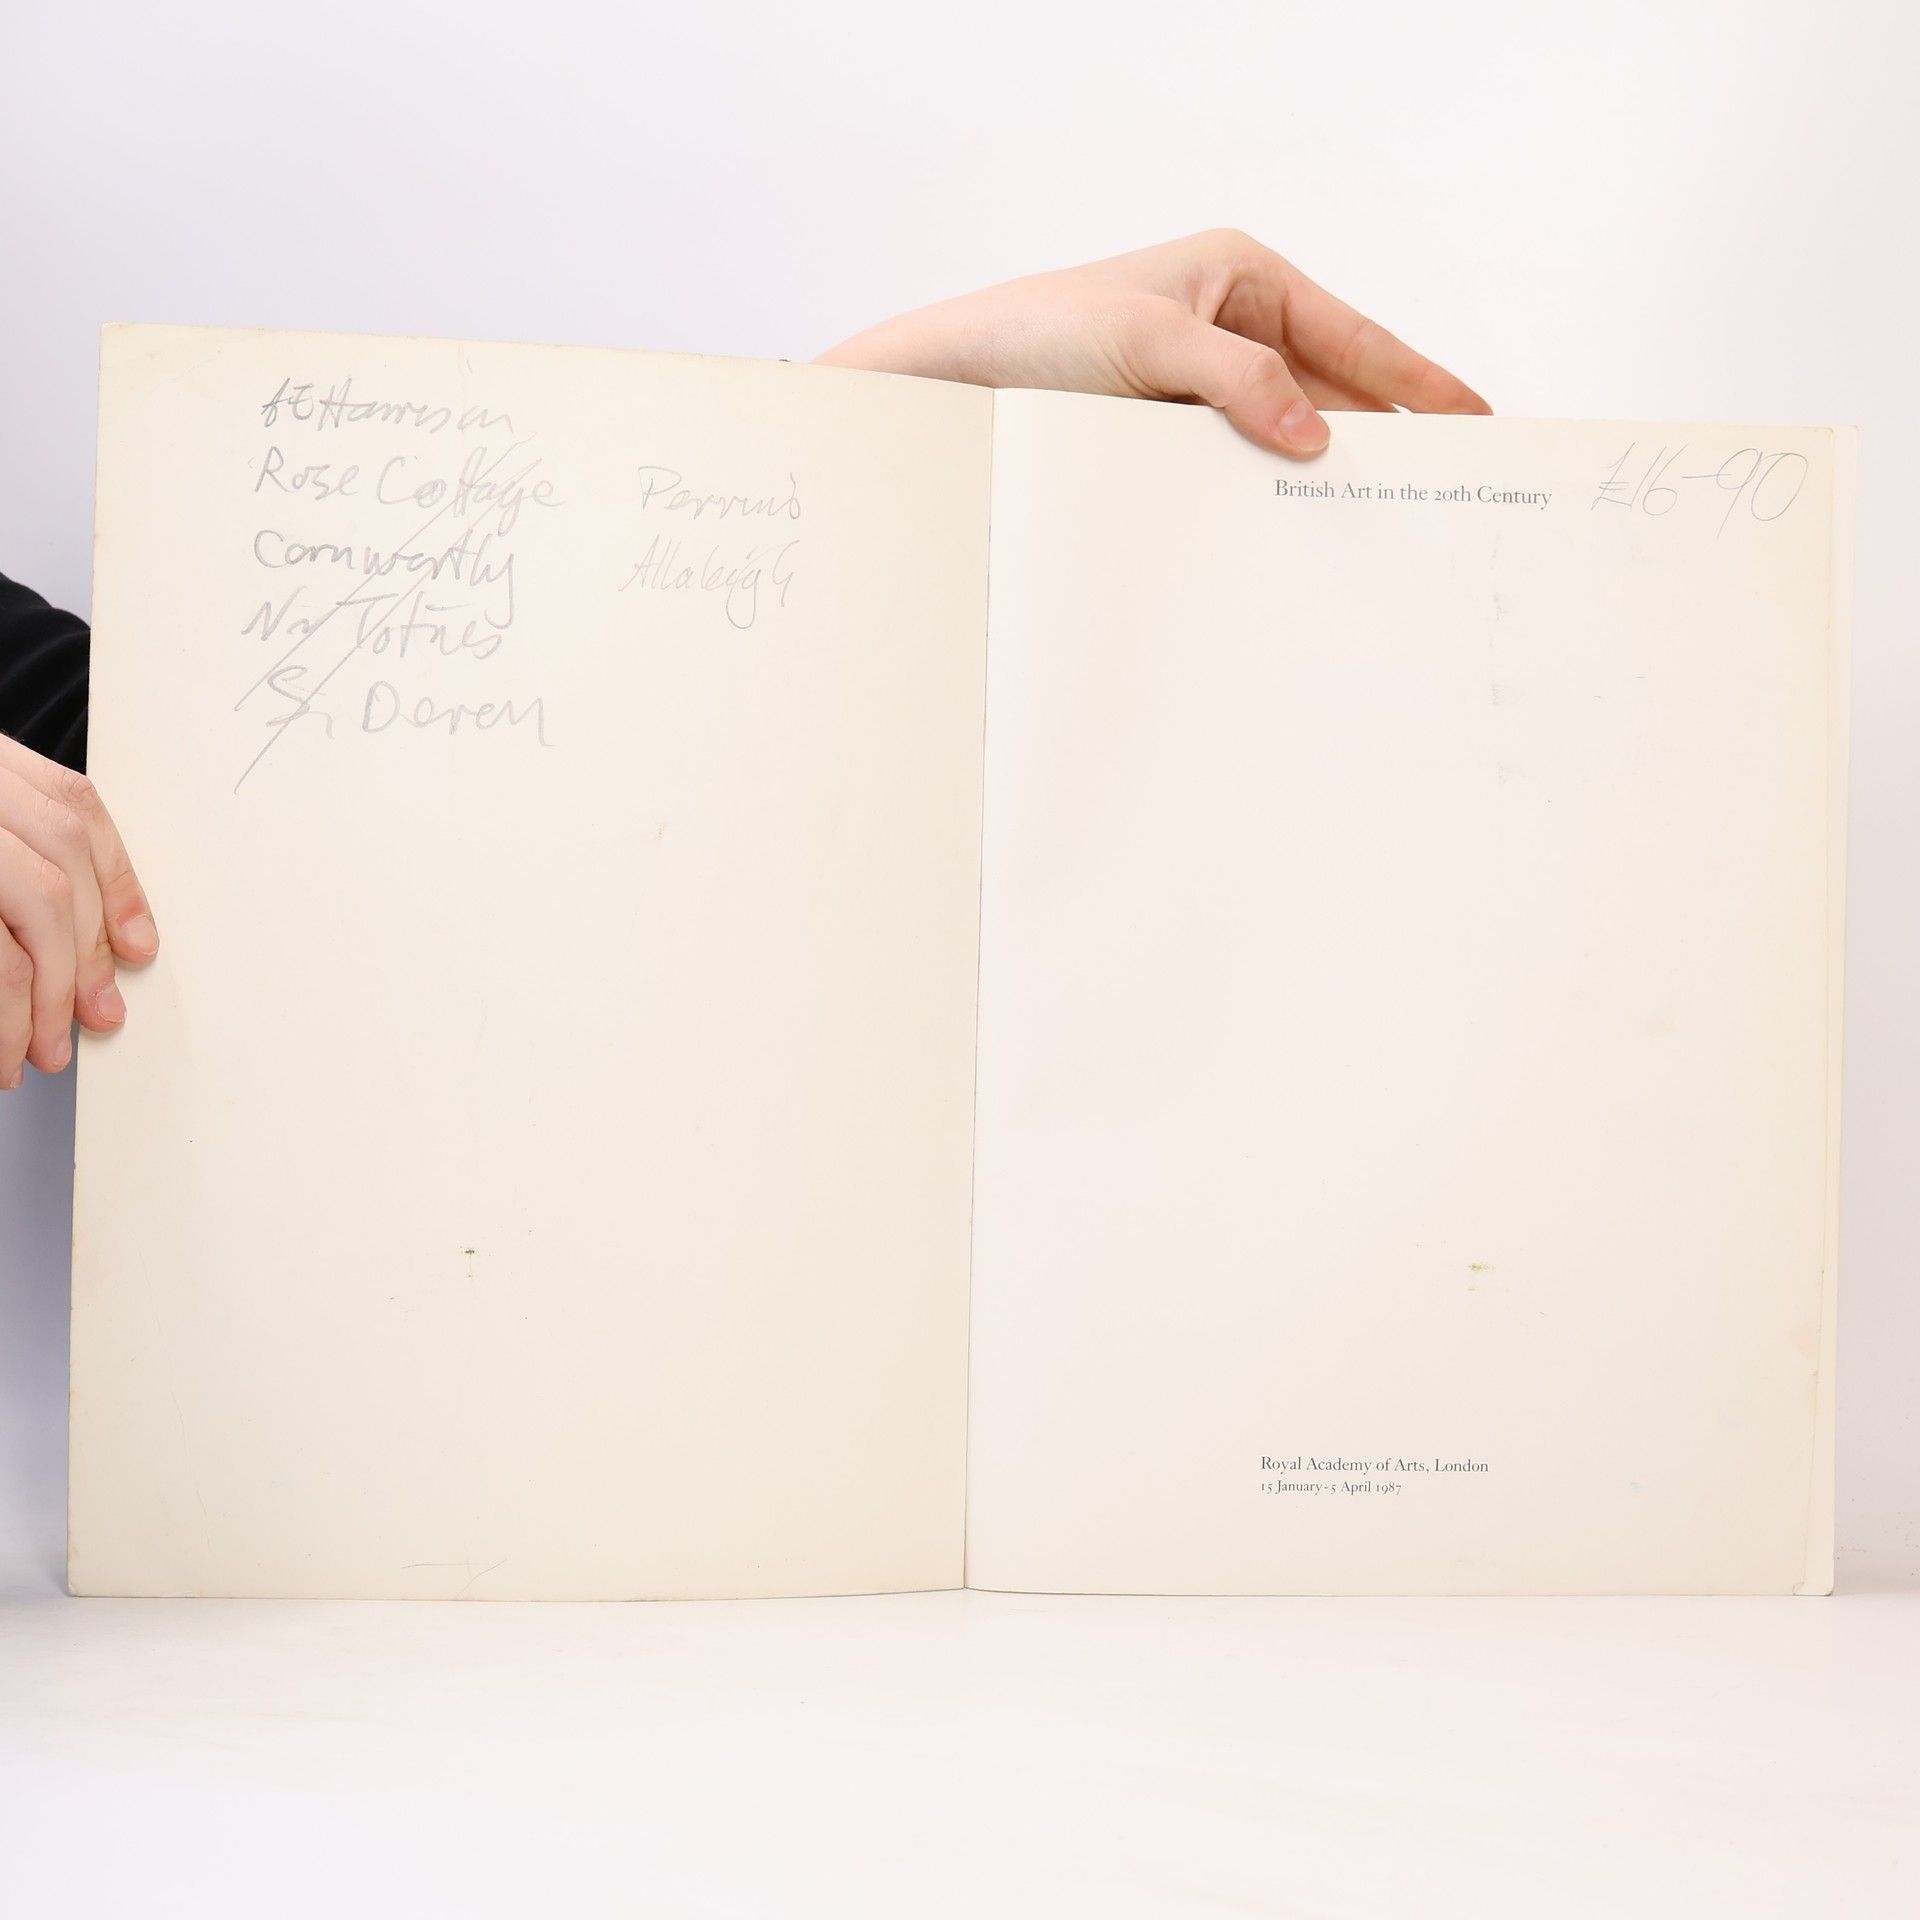 AE Harrison
Rose Cottage
Cornworthy
Nr Totnes
Sn Devon
Perrins
Allaleigh
British Art in the 20th Century
£16-90
Royal Academy of Arts, London
15 January-5 April 1987